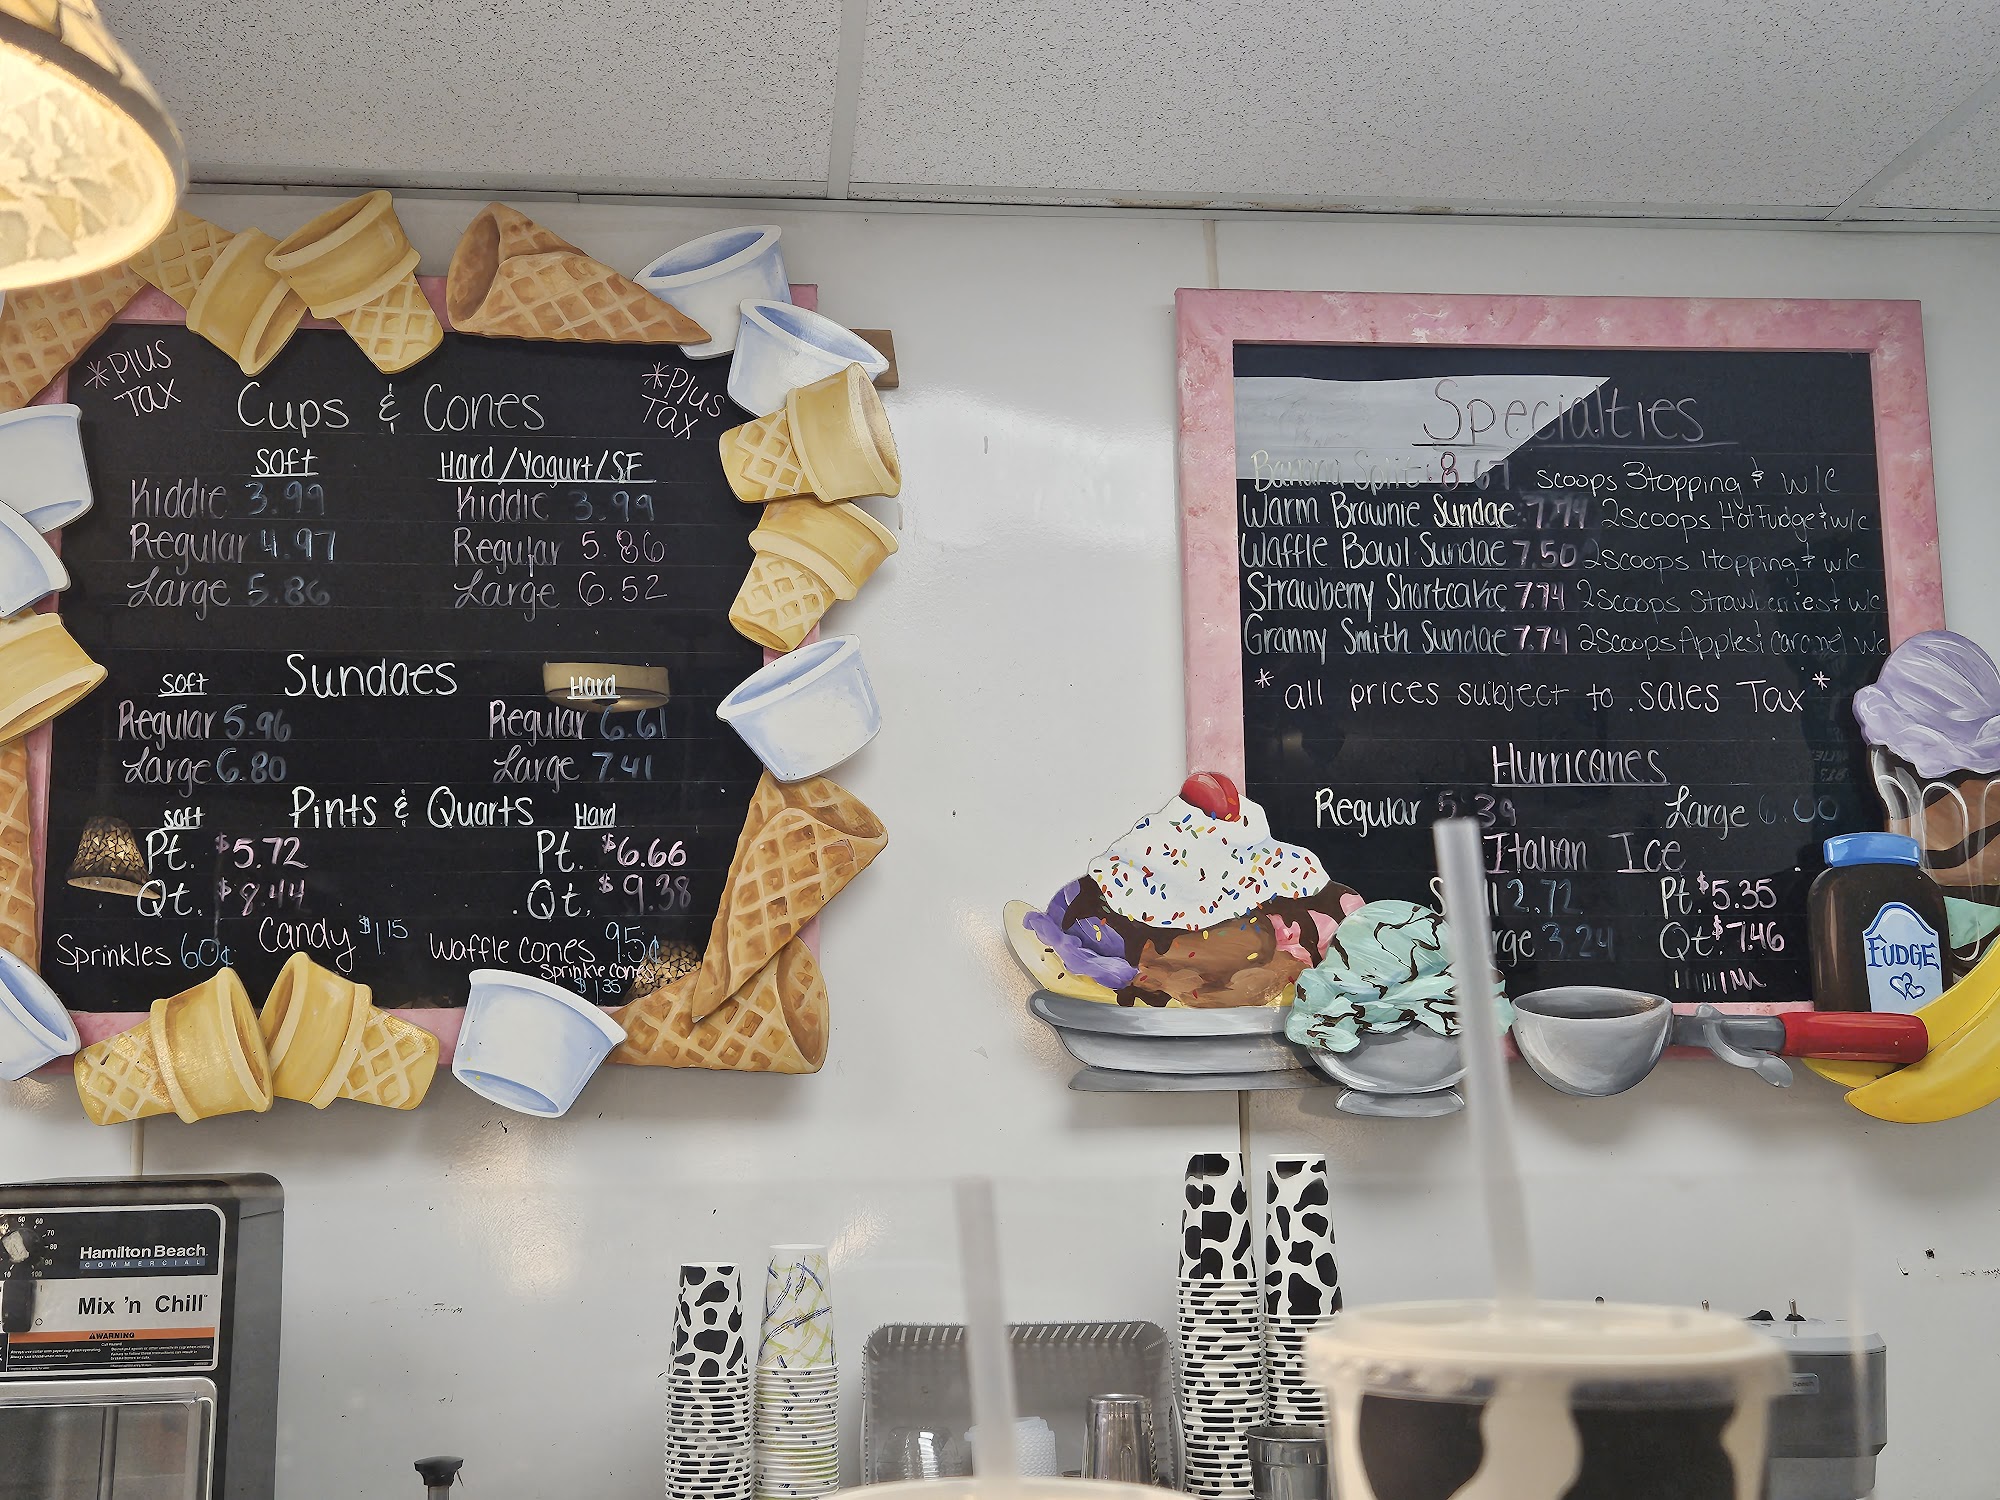 *Plus Tax
*Plus Tax
Cups & Cones
Soft
Kiddie 3.99
Regular 4.97
Large 5.86
Hard/Yogurt/SF
Kiddie 3.99
Regular 5.86
Large 6.52
Sundaes
Soft
Regular 5.96
Large 6.80
Hard
Regular 6.61
Large 7.41
Pints & Quarts
Soft
Pt. $5.72
Qt. $8.44
Hard
Pt. $6.66
Qt. $9.38
Sprinkles 60¢
Candy $1.15
Waffle cones 95¢
Sprinkle cones
$1.35
Specialties
Banana Split 8.67 scoops 3topping & w/c
Warm Brownie Sundae 7.74 2scoops Hot Fudge & w/c
Waffle Bowl Sundae 7.50 2scoops 1topping & w/c
Strawberry Shortcake 7.74 2scoops Strawberries & w/c
Granny Smith Sundae 7.74 2scoops Apples & caramel w/c
*all prices subject to sales Tax*
Hurricanes
Regular 5.39 Large 6.00
Italian Ice
2.72 Pt. $5.35
3.24 Qt. $7.46
FUDGE
Hamilton Beach
COMMERCIAL
Mix 'n Chill
WARNING